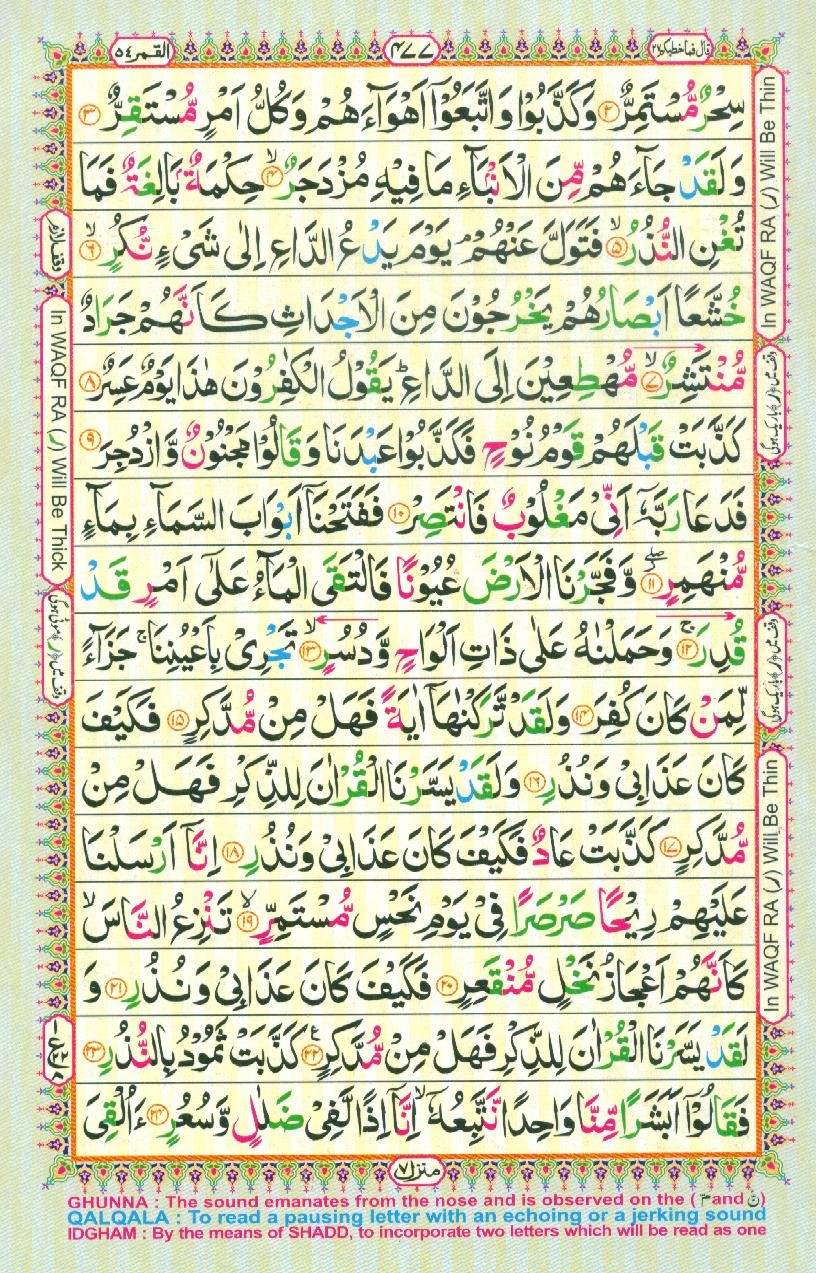 القمر ٥٤
٤٧٧
قال فما خطبكم ٢٧
سِحۡرٌ مُّسۡتَمِرٌّ ﴿۲﴾ وَكَذَّبُوۡا وَاتَّبَعُوۡۤا اَهۡوَآءَهُمۡ وَكُلُّ اَمۡرٍ مُّسۡتَقِرٌّ ﴿۳﴾
وَلَقَدۡ جَآءَهُمۡ مِّنَ الۡاَنۡۢبَآءِ مَا فِيۡهِ مُزۡدَجَرٌ ۙ﴿۴﴾ حِكۡمَةٌۢ بَالِغَةٌ فَمَا
تُغۡنِ النُّذُرُ ۙ﴿۵﴾ فَتَوَلَّ عَنۡهُمۡ ۘ يَوۡمَ يَدۡعُ الدَّاعِ اِلٰى شَىۡءٍ نُّكُرٍ ۙ﴿۶﴾
خُشَّعًا اَبۡصَارُهُمۡ يَخۡرُجُوۡنَ مِنَ الۡاَجۡدَاثِ كَاَنَّهُمۡ جَرَادٌ
مُّنۡتَشِرٌ ۙ﴿۷﴾ مُّهۡطِعِيۡنَ اِلَى الدَّاعِ ؕ يَقُوۡلُ الۡكٰفِرُوۡنَ هٰذَا يَوۡمٌ عَسِرٌ ﴿۸﴾
كَذَّبَتۡ قَبۡلَهُمۡ قَوۡمُ نُوۡحٍ فَكَذَّبُوۡا عَبۡدَنَا وَقَالُوۡا مَجۡنُوۡنٌ وَّازۡدُجِرَ ﴿۹﴾
فَدَعَا رَبَّهٗۤ اَنِّىۡ مَغۡلُوۡبٌ فَانۡتَصِرۡ ﴿۱۰﴾ فَفَتَحۡنَاۤ اَبۡوَابَ السَّمَآءِ بِمَآءٍ
مُّنۡهَمِرٍ ۖ﴿۱۱﴾ وَّفَجَّرۡنَا الۡاَرۡضَ عُيُوۡنًا فَالۡتَقَى الۡمَآءُ عَلٰٓى اَمۡرٍ قَدۡ
قُدِرَ ۚ﴿۱۲﴾ وَحَمَلۡنٰهُ عَلٰى ذَاتِ اَلۡوَاحٍ وَّدُسُرٍ ۙ﴿۱۳﴾ تَجۡرِىۡ بِاَعۡيُنِنَا ۚ جَزَآءً
لِّمَنۡ كَانَ كُفِرَ ﴿۱۴﴾ وَلَقَدۡ تَّرَكۡنٰهَاۤ اٰيَةً فَهَلۡ مِنۡ مُّدَّكِرٍ ﴿۱۵﴾ فَكَيۡفَ
كَانَ عَذَابِىۡ وَنُذُرِ ﴿۱۶﴾ وَلَقَدۡ يَسَّرۡنَا الۡقُرۡاٰنَ لِلذِّكۡرِ فَهَلۡ مِنۡ
مُّدَّكِرٍ ﴿۱۷﴾ كَذَّبَتۡ عَادٌ فَكَيۡفَ كَانَ عَذَابِىۡ وَنُذُرِ ﴿۱۸﴾ اِنَّاۤ اَرۡسَلۡنَا
عَلَيۡهِمۡ رِيۡحًا صَرۡصَرًا فِىۡ يَوۡمِ نَحۡسٍ مُّسۡتَمِرٍّ ۙ﴿۱۹﴾ تَنۡزِعُ النَّاسَ ۙ
كَاَنَّهُمۡ اَعۡجَازُ نَخۡلٍ مُّنۡقَعِرٍ ﴿۲۰﴾ فَكَيۡفَ كَانَ عَذَابِىۡ وَنُذُرِ ﴿۲۱﴾ وَ
لَقَدۡ يَسَّرۡنَا الۡقُرۡاٰنَ لِلذِّكۡرِ فَهَلۡ مِنۡ مُّدَّكِرٍ ﴿۲۲﴾ كَذَّبَتۡ ثَمُوۡدُ بِالنُّذُرِ ﴿۲۳﴾
فَقَالُوۡۤا اَبَشَرًا مِّنَّا وَاحِدًا نَّتَّبِعُهٗۤ ۙ اِنَّاۤ اِذًا لَّفِىۡ ضَلٰلٍ وَّسُعُرٍ ﴿۲۴﴾ ءَاُلۡقِىَ
منزل ٧
In WAQF RA (ر) Will Be Thin
وقف میں ﴿ر﴾ باریک ہوگی
وقف میں ﴿ر﴾ باریک ہوگی
In WAQF RA (ر) Will Be Thin
وقف لازم
In WAQF RA (ر) Will Be Thick
وقف میں ﴿ر﴾ موٹی ہوگی
GHUNNA : The sound emanates from the nose and is observed on the ( م and ن )
QALQALA : To read a pausing letter with an echoing or a jerking sound
IDGHAM : By the means of SHADD, to incorporate two letters which will be read as one